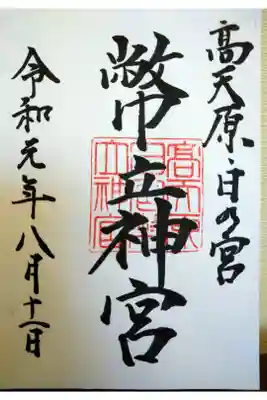 高天原・日の宮
幣立神宮
令和元年八月十一日